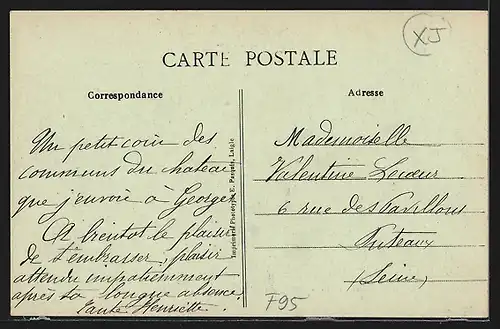 XJ
CARTE POSTALE
Correspondance
Adresse
Un petit coin des
communs du chateau
que j'envoie à Georges
A bientot le plaisir
de t'embrasser, plaisir
attendu impatiemment
après ta longue absence.
Tante Henriette.
Imprimerie Phototypie E. Paquis, Laigle
Mademoiselle
Valentine Lecœur
6 rue des Pavillons
Puteaux
(Seine)
F95